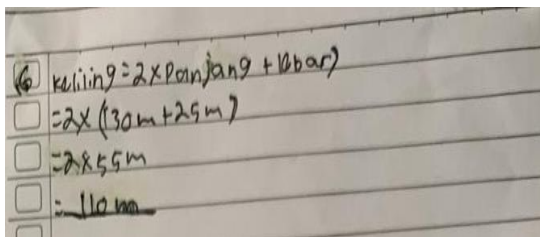 6 keliling = 2 x panjang + lebar)
= 2 x (30m + 25m)
= 2 x 55m
= 110 m